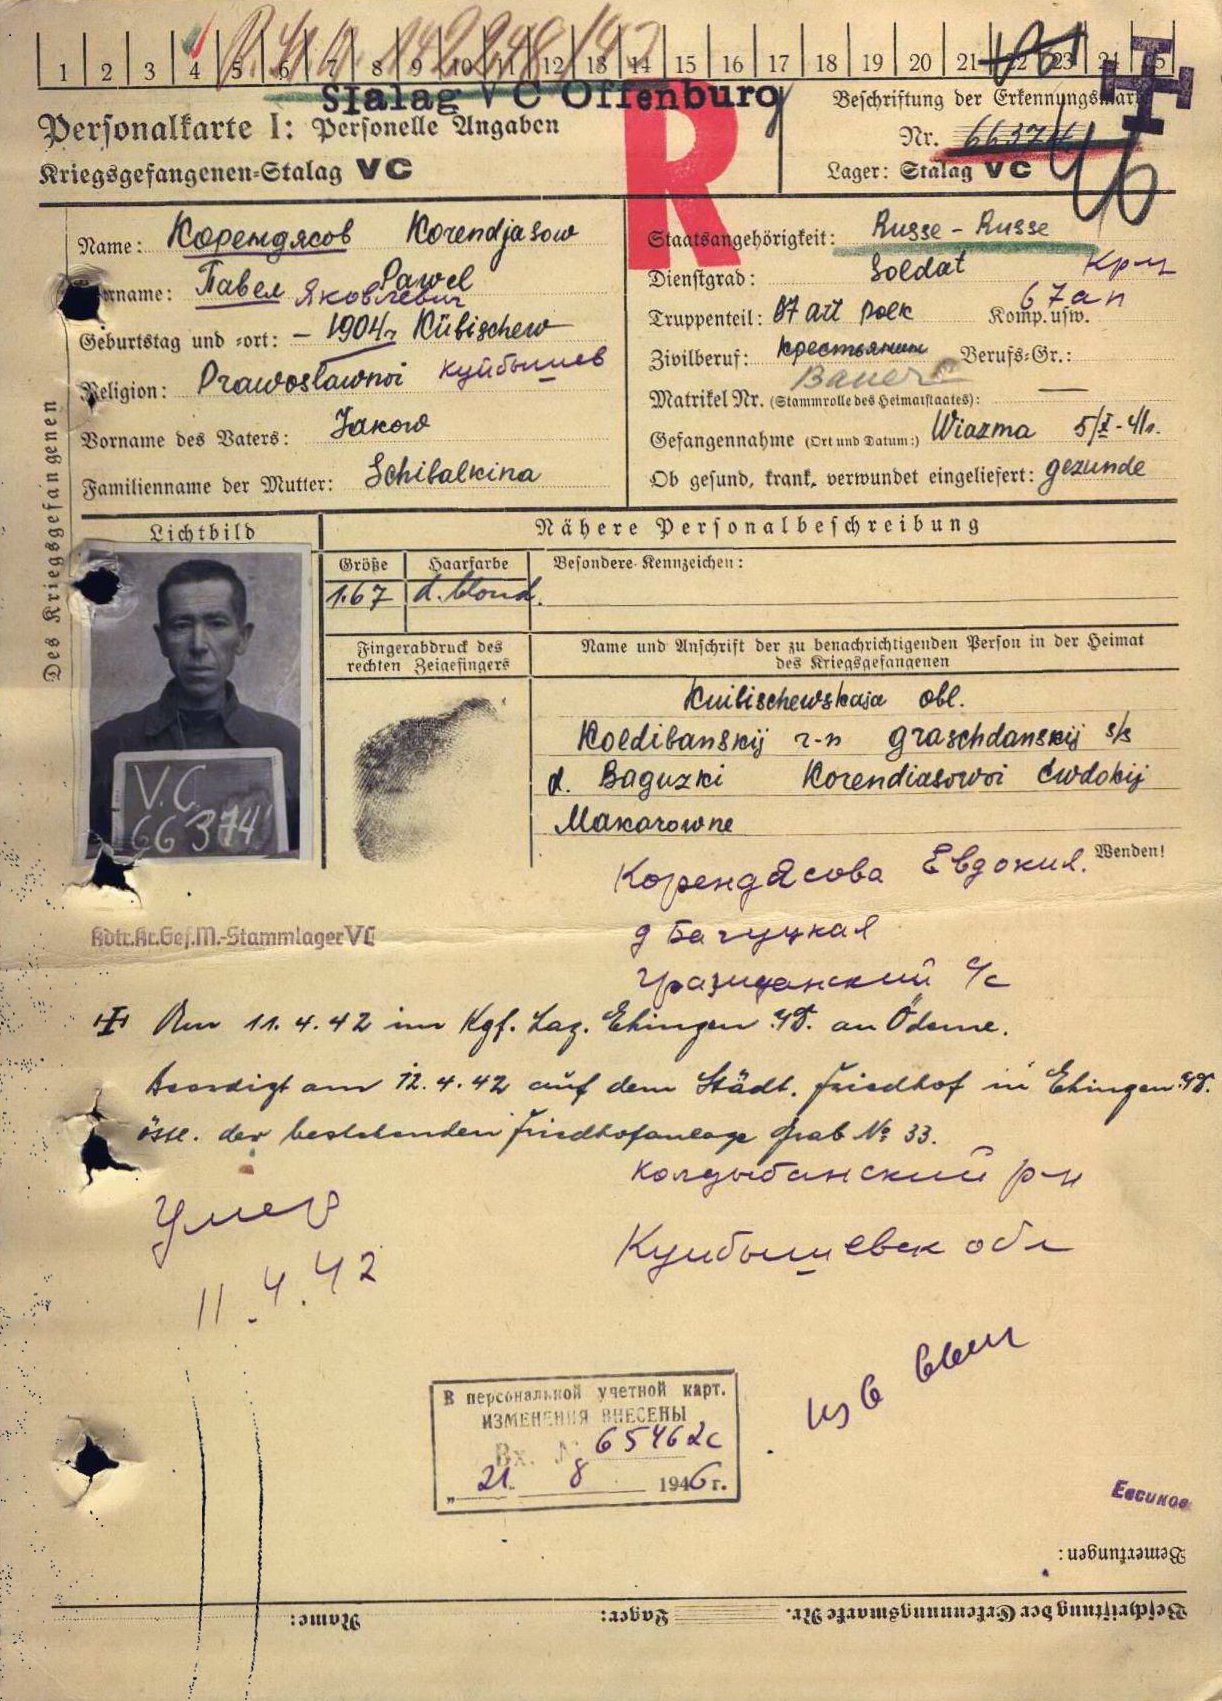 1 2 3 4 5 6 7 8 9 10 11 12 13 14 15 16 17 18 19 20 21 22 23 24 25
Stalag V C Offenburg
Personalkarte I: Personelle Angaben
Kriegsgefangenen-Stalag VC
R
Beschriftung der Erkennungsmarke
Nr. 66374
Lager: Stalag VC
Des Kriegsgefangenen
Name: Корендясов Korendjasow
Vorname: Павел Pawel
Яковлевич
Geburtstag und -ort: – 1904г Kübischew
Куйбышев
Religion: Prawoslawnoi
Vorname des Vaters: Jakow
Familienname der Mutter: Schibalkina
Staatsangehörigkeit: Russe - Russe
Dienstgrad: Soldat Кр-ц
Truppenteil: 87 art polk Komp. usw. 67 ап
Zivilberuf: крестьянин Berufs-Gr.:
Bauer
Matrikel Nr. (Stammrolle des Heimatstaates): —
Gefangennahme (Ort und Datum:) Wiazma 5/X-41г.
Ob gesund, krank, verwundet eingeliefert: gezunde
Lichtbild
Nähere Personalbeschreibung
Größe Haarfarbe Besondere Kennzeichen:
1.67 d. blond.
V.C.
66374
Fingerabdruck des
rechten Zeigefingers
Name und Anschrift der zu benachrichtigenden Person in der Heimat
des Kriegsgefangenen
Kuibischewskaja obl.
Koldibanskij r-n graschdanskij s/s
d. Baguzki Korendiasowoi Ewdokij
Makarowne
Wenden!
Корендясова Евдокия.
д Багуцкая
Гражданский с/с
Kdtr.Kr.Gef.M.-Stammlager VC
Am 11.4.42 im Kgf. Laz. Ehingen a/D. an Ödeme.
Beerdigt am 12.4.42 auf dem Städt. Friedhof in Ehingen a/D.
östl. der bestehenden Friedhofanlage Grab № 33.
Колдыбанский р-н
Куйбышевск обл
Умер
11.4.42
В персональной учетной карт.
ИЗМЕНЕНИЯ ВНЕСЕНЫ
Вх. № 65462с
„ 21. 8 1946 г.
Евсиков
Bemerkungen:
Beschriftung der Erkennungsmarke Nr. Lager: Name: